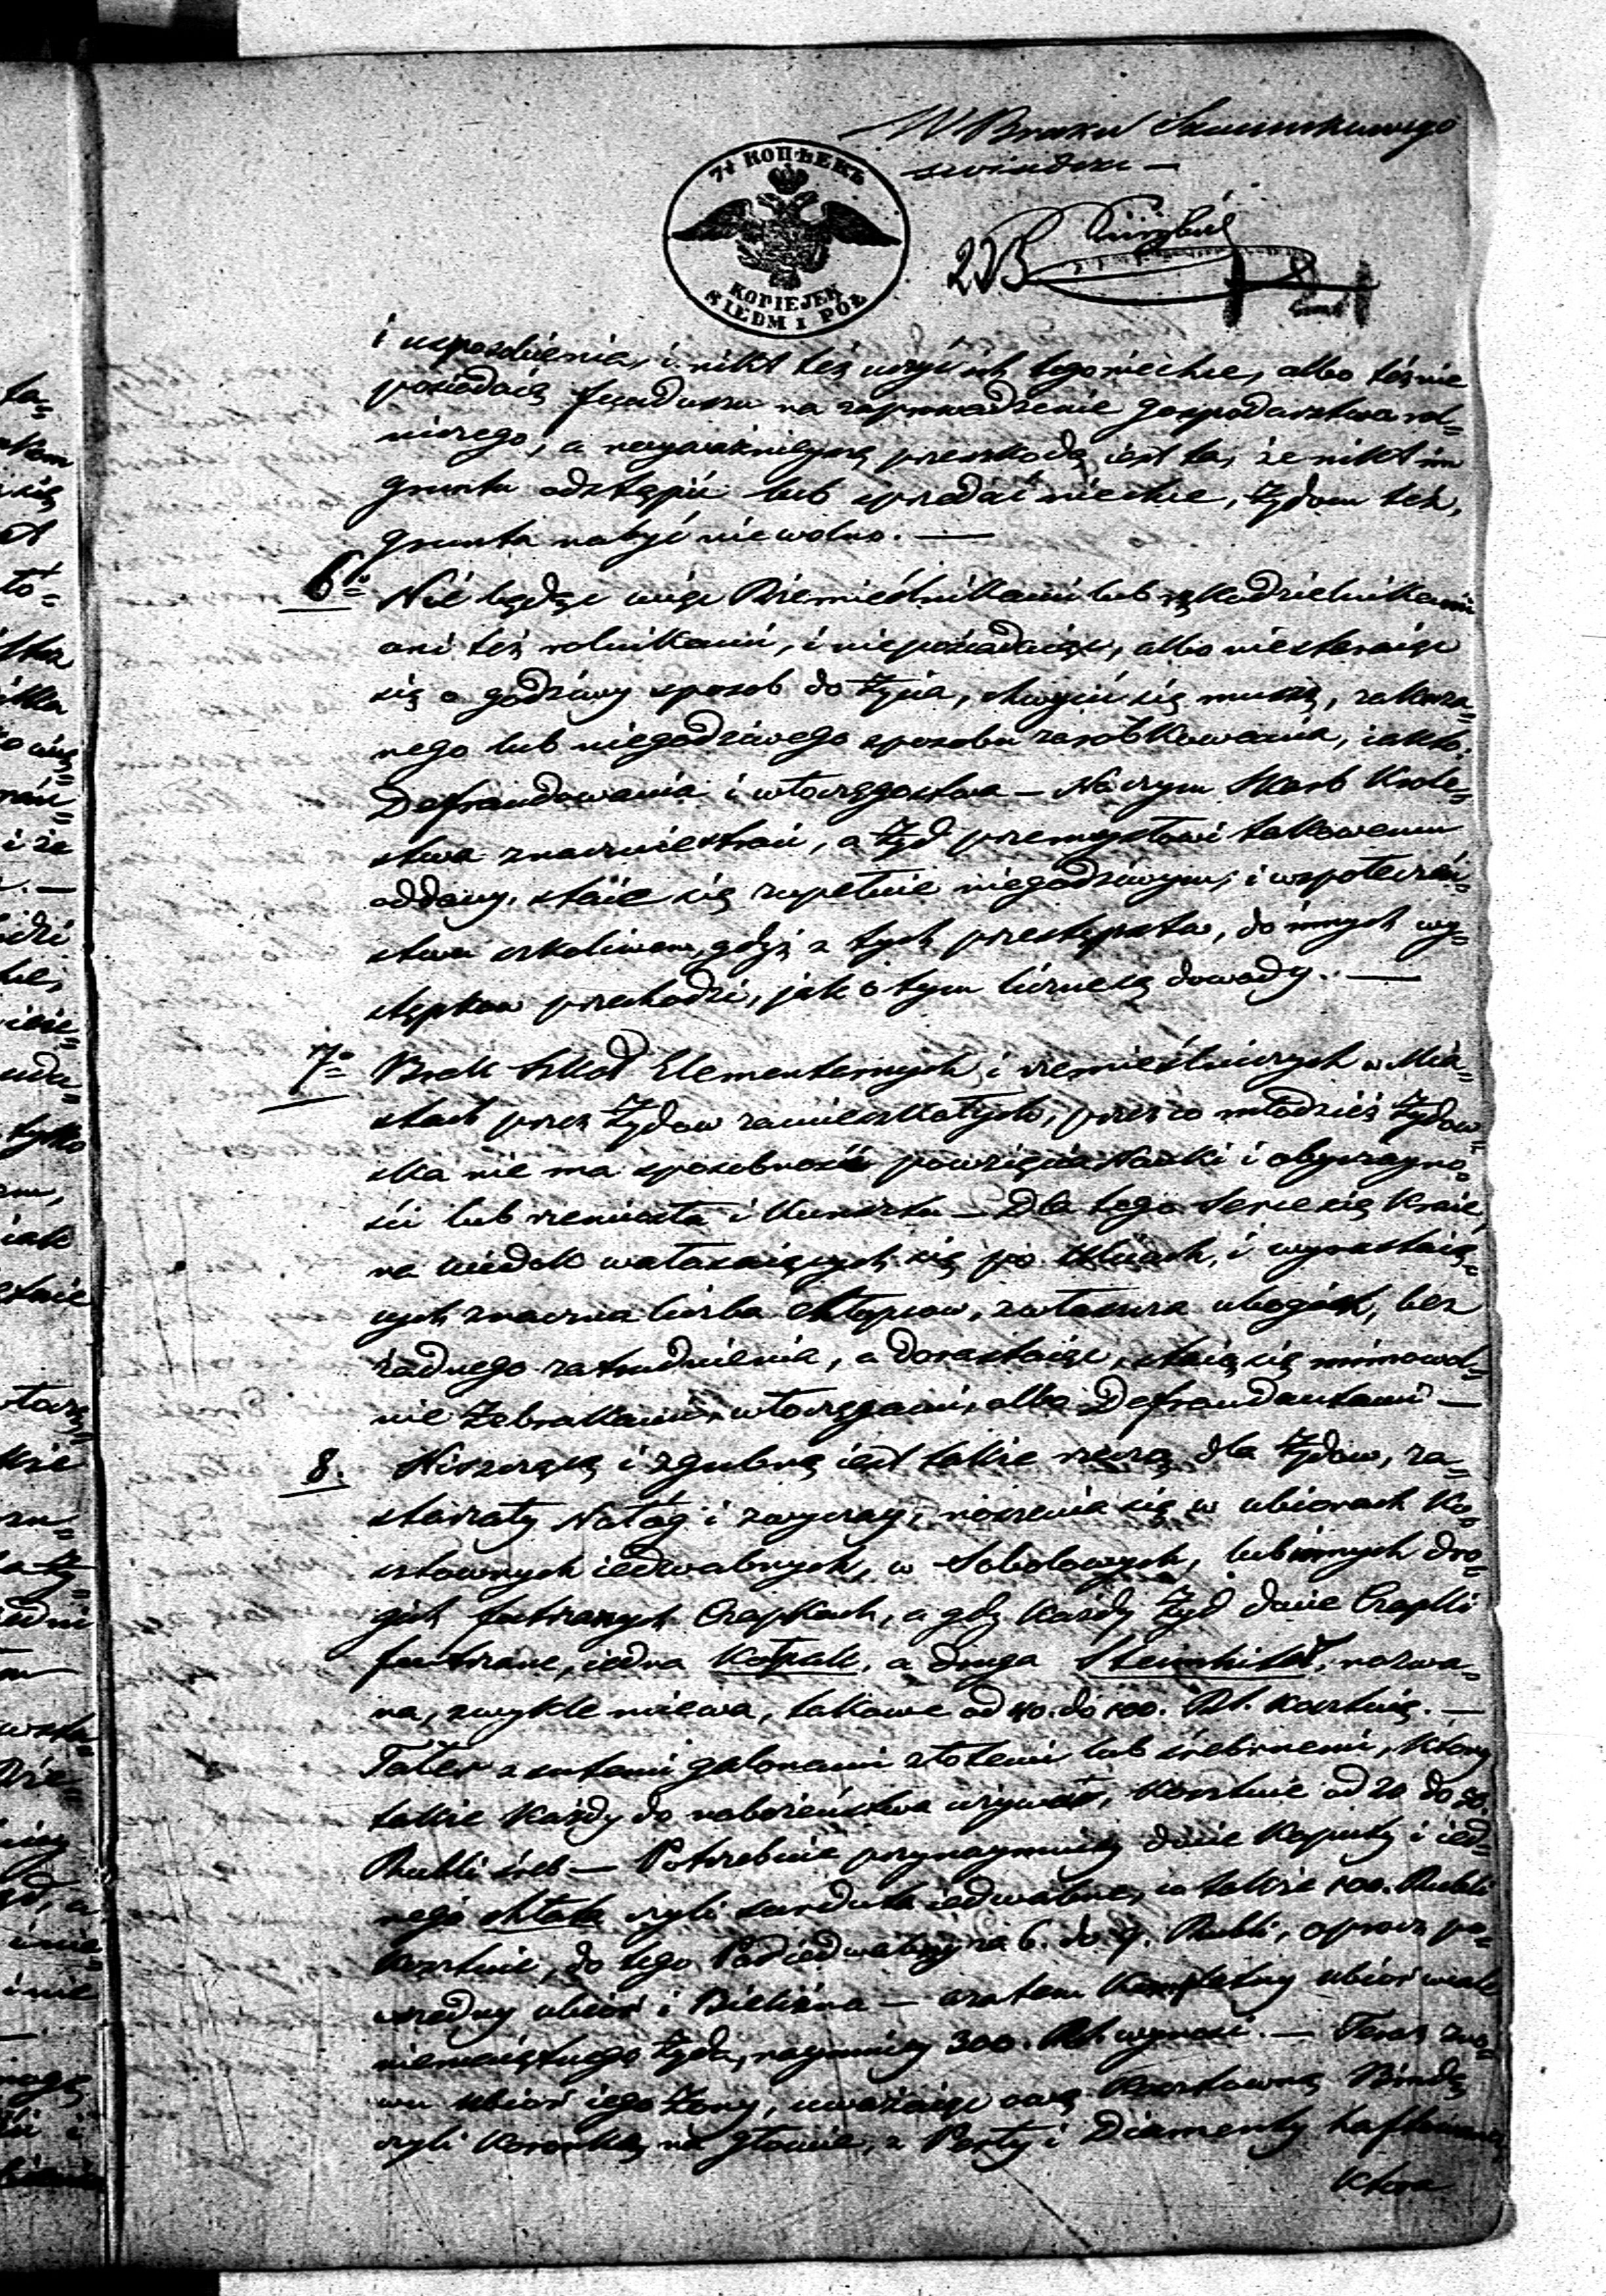 W Braku Szacunkowego
świadczę —
7½ КОПѢЕКЪ
KOPIEJEK
SIEDM I PÓŁ
i usposobienia, i nikt też uczyć ich tego niechce, albo też nie
posiadaią funduszu na zaprowadzenie gospodarstwa rol=
niczego, a naywaznieyszą przeszkodą iest ta, że nikt im
gruntu odstąpić lub sprzedać niechce, Żydom też,
grunta nabyć nie wolno. —
6to Nie będąc więc Rzemieślnikami lub rękodzielnikami
ani też rolnikami, i nieposiadaiąc, albo niestaraiąc
się o godziwy sposób do życia, chwycić się muszą, zakaza=
nego lub niegodziwego sposobu zarobkowania, iakto:
Defraudowania i włoczęgostwa — Na czym Skarb Krole=
stwa znacznie traci, a Żyd przemysłowi takowemu
oddany, staie się zupełnie niegodziwym, i społeczeń=
stwu szkodliwem, gdyż z tych przestępstw, do innych wy=
stępkow przechodzi, jak o tym liczne są dowody. —
7o Brak Szkoł Elementarnych i rzemieślniczych w Mia=
stach przez Żydow zamieszkałych, przez co młodzież Żydow=
ska nie ma sposobności powzięcia Nauki i obyczayno=
ści lub rzemiosła i Kunsztu — Dla tego serce się kraie,
na widok wałęsaiących się po ulicach, i wyrastaią=
cych znaczna liczba chłopcow, zwłaszcza ubogich, bez
żadnego zatrudnienia, a dorastaiąc, staią się mimowol=
nie żebrakami, włoczęgami, albo Defraudantami —
8. Niszczącą i zgubną iest także rzeczą dla Żydow, za=
starzały Nałog i zwyczay, noszenia się w ubiorach Ko=
sztownych iedwabnych, w Sobolowych, lub innych dro=
gich futrzanych Czapkach, a gdy każdy Żyd dwie Czapki
futrzane, iedna Kołpak, a druga nazwa=
na, zwykle miewa, takowe od 40. do 100. Rb. kosztuią. —
Tałes z sutemi galonami złotemi lub srebrnemi, który
także każdy do nabożeństwa używa, kosztuie od 20 do 50
Rubli sreb — Potrzebuie przynaymniey dwie Kapoty i ied=
nego czyli surduta iedwabne, co także 100. Rubli
kosztuie, do tego Pas iedwabny za 6. do 9. Rubli, oprocz po=
wszedny ubior i Bielizna — zatem kompletny ubior wcale
niemaiętnego Żyda, naymniey 300. Rb wynosi. — Teraz zno=
wu ubior iego Żony, uważaiąc owe kosztowną Bindę
czyli Koronkę na głowie, z Perły i Diamenty haftowaną
ktora